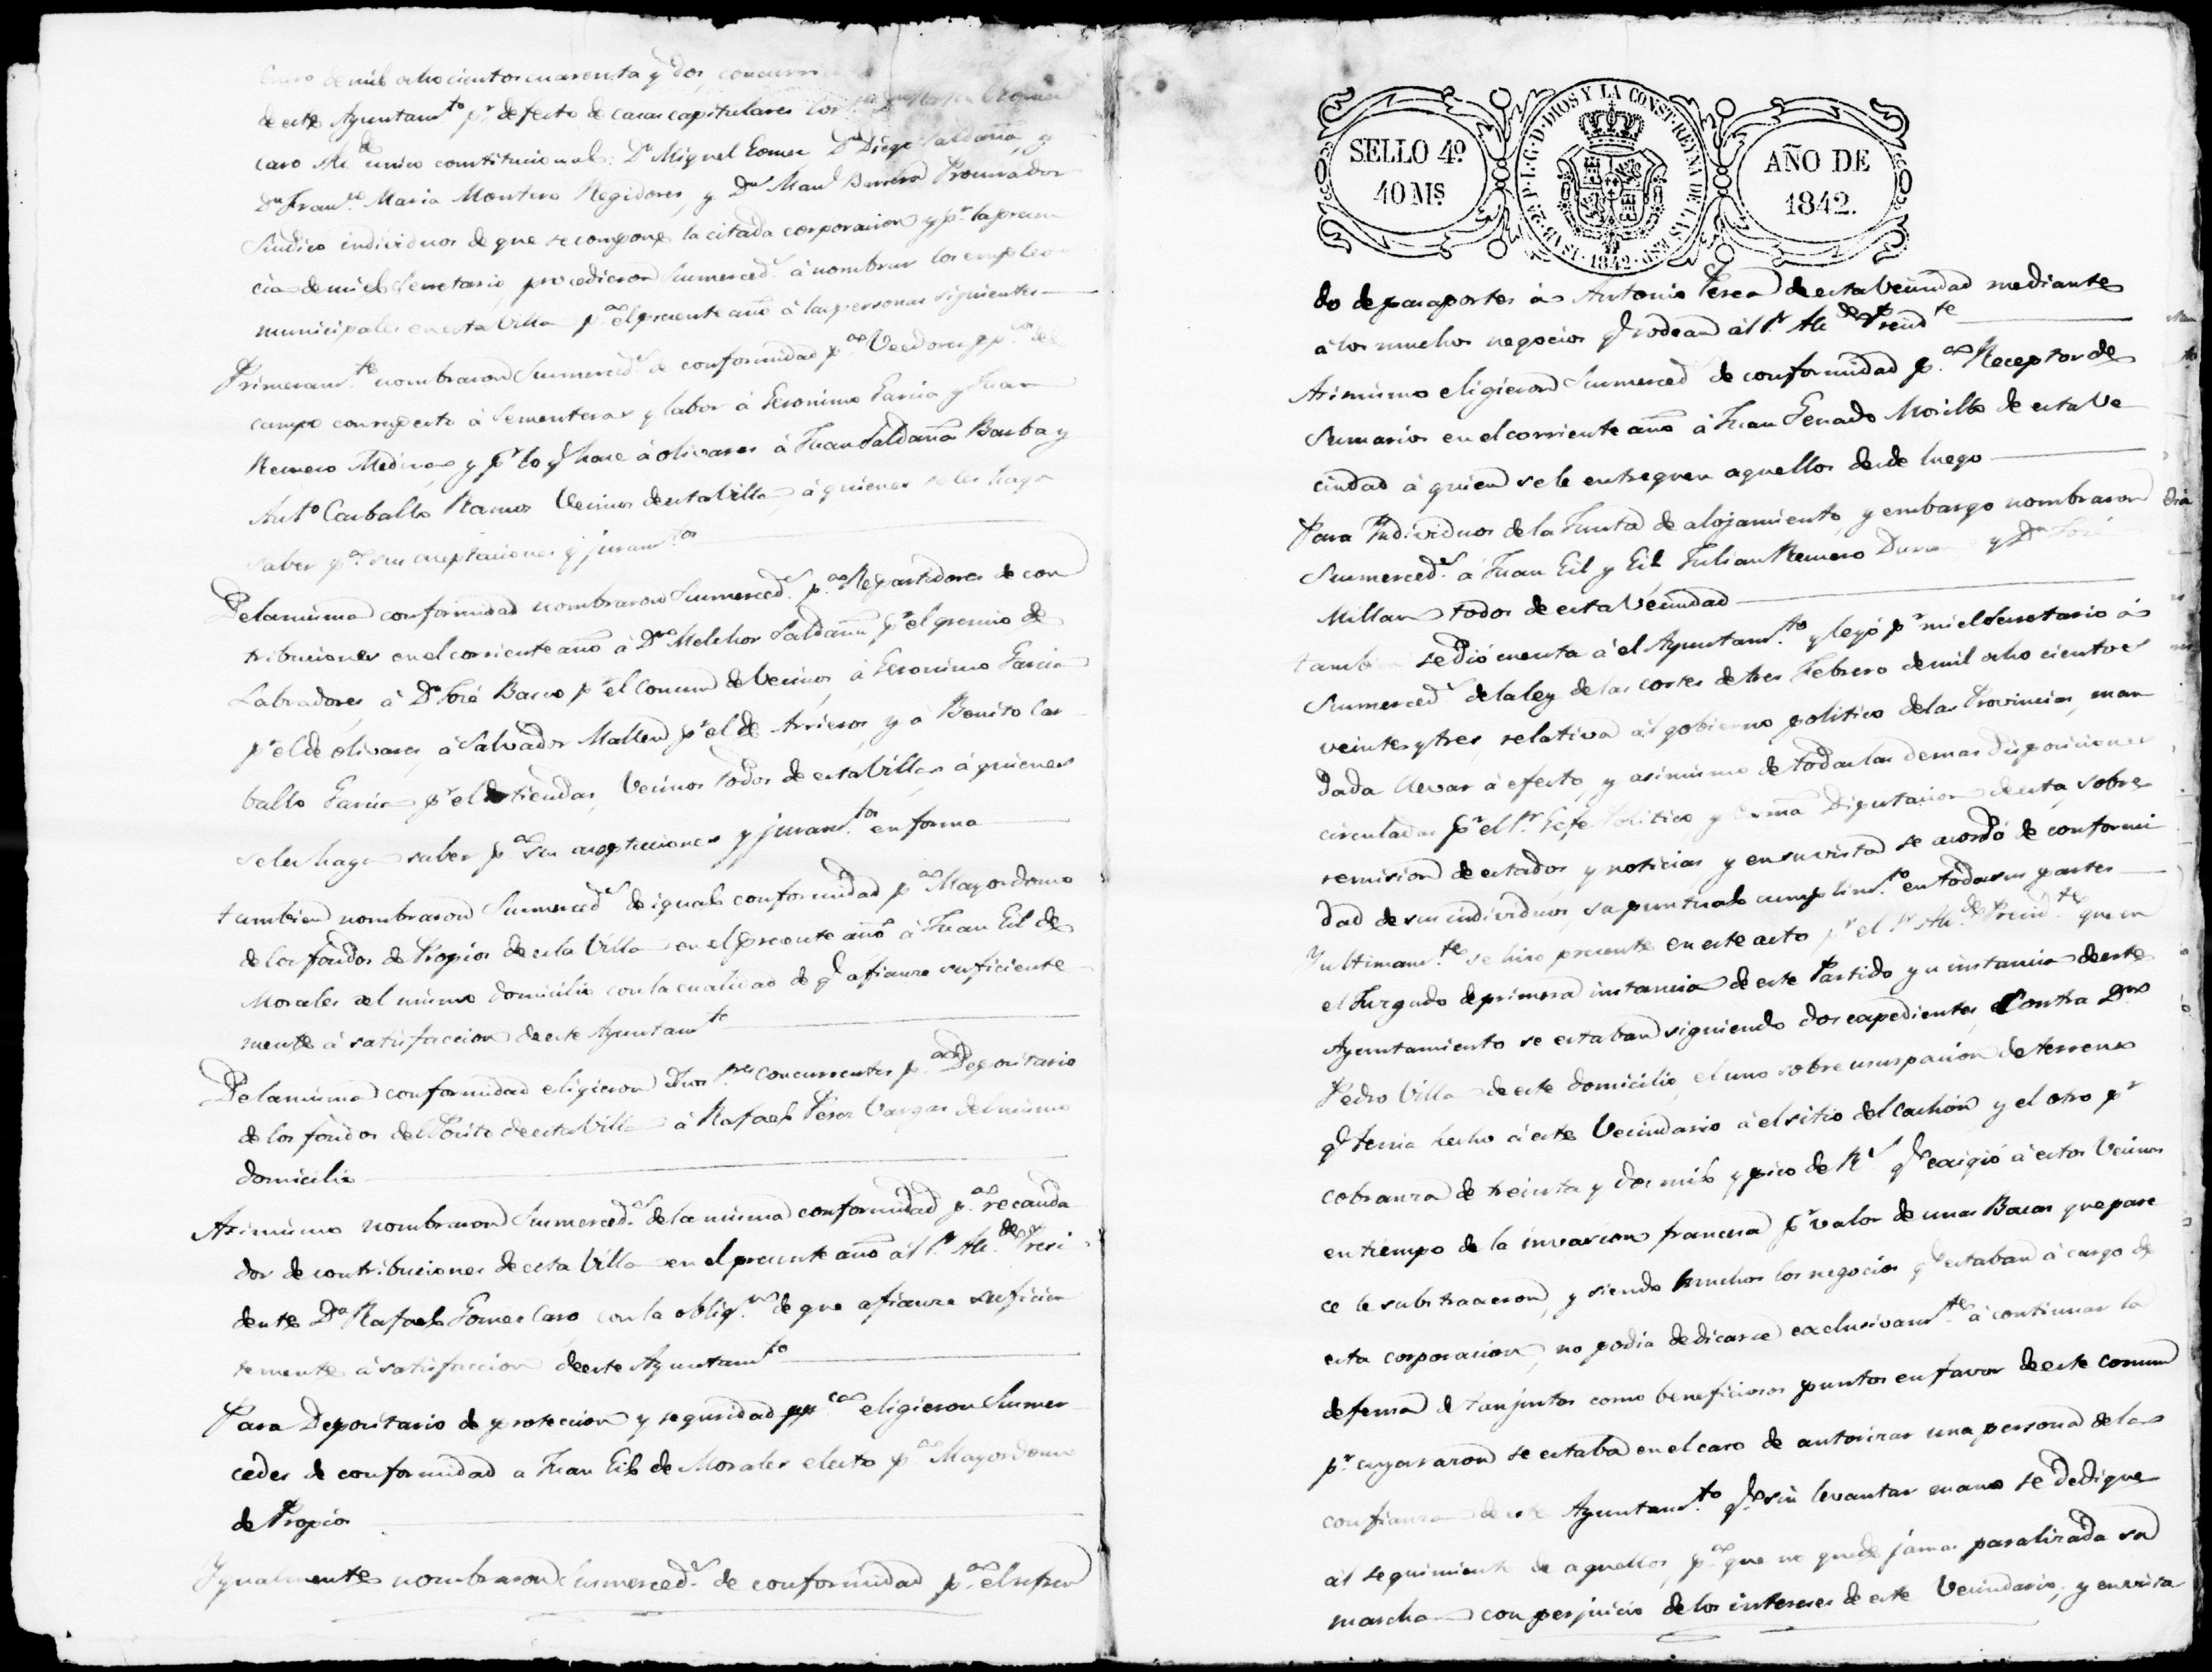 de mil ochocientos cuarenta y dos, concurr
de este Ayuntamto pr defecto de casas capitulares los
caro Alde unico constitucional: Dn Miguel Gomez Dn Diego Saldaña, y
Dn Franco Maria Montero Regidores, y Dn Manl Barrera Procurador
Sindico individuos de que se compone la citada corporacion y pr la presen
cia de mi el Secretario, procedieron Sumerceds à nombrar los empleos
municipales en esta Villa pa el presente año à las personas siguientes
Primeramte nombraron Sumerceds de conformidad pa Veedores pcos del
campo con respecto à Sementeras y labor à Geronimo Garcia y Juan
Romero Medina y pr lo q hace à olivares à Juan Saldaña Barba y
Anto Carballo Ramos Vecinos de esta Villa, à quienes se les haga
saber pa sus aceptaciones y juramtos
De la misma conformidad nombraron Sumerceds pa Repartidores de con
tribuciones en el corriente año à Dn Melchor Saldaña pr el gremio de
Labradores, à Dn José Barco pr el comun de Vecinos, à Geronimo Garcia
pr el de olivares, à Salvador Mallen pr el de Arrieros, y à Benito Car
ballo Garcia pr el de tiendas, Vecinos todos de esta Villa, à quienes
se les haga saber pa sus aceptaciones y juramtos en forma
tambien nombraron Sumerceds de igual conformidad pa Mayordomo
de los fondos de Propios de esta Villa en el presente año à Juan Gil de
Morales del mismo domicilio con la cualidad de q afiance suficiente
mente à satisfaccion de este Ayuntamto
De la misma conformidad eligieron dhos Sres concurrentes pa Depositario
de los fondos del Posito de esta Villa à Rafael Perez Vargas del mismo
domicilio
Asimismo nombraron Sumerceds de la misma conformidad pa recauda
dor de contribuciones de esta Villa en el presente año àl Sr Alde Presi
dente Dn Rafael Gomez Caro con la obligon de que afiance suficien
temente à satisfaccion de este Ayuntamto
Para Depositario de proteccion y seguridad ppca eligieron Sumer
cedes de conformidad a Juan Gil de Morales electo pa Mayordomo
de Propios
Ygualmente nombraron Sumerceds de conformidad pa el refren
SELLO 4º
40 Ms
ISAB. 2ª P. L. G. D. DIOS Y LA CONST. REYNA DE LAS ESP. 1842
AÑO DE
1842.
do de pasaportes à Antonio Perea de esta vecindad mediante
à los muchos negocios q rodean àl Sr Alde Presidte
Asimismo eligieron Sumerceds de conformidad pa Receptor de
Sumarios en el corriente año à Juan Penado Morillo de esta Ve
cindad à quien se le entreguen aquellos desde luego
Para Individuos de la Junta de alojamiento, y embargo nombraron
Sumerceds à Juan Gil y Gil Julian Romero Duran y Dn José
Millan todos de esta Vecindad
tambien se dió cuenta à el Ayuntamto y leyó pr mi el Secretario à
Sumerceds de la ley de las cortes de tres Febrero de mil ocho cientos
veinte y tres, relativa àl gobierno politico de las Provincias, man
dada llevar à efecto, y asimismo de todas las demas disposiciones
circuladas pr el Sr Gefe Politico, y Exma Diputacion de esta, sobre
remision de estados y noticias y en su vista se acordó de conformi
dad de sus individuos, su puntual cumplimto en todas sus partes
Y ultimamte se hizo presente en este acto pr el Sr Alde Presidte que en
el Juzgado de primera instancia de este Partido y a instancia de este
Ayuntamiento se estaban siguiendo dos expedientes Contra Dn
Pedro Villa de este domicilio, el uno sobre usurpacion de terreno
q tenia hecho à este Vecindario à el sitio del cachón y el otro pr
cobranza de treinta y dos mil y pico de Rs q exigió à estos Vecinos
en tiempo de la invasion francesa pr valor de unas Bacas que pare
ce le substraxeron, y siendo muchos los negocios q estaban à cargo de
esta corporacion, no podia dedicarse exclusivamte à continuar la
defensa de tan justos como beneficiosos puntos en favor de este comun
pr cuya razon se estaba en el caso de autorizar una persona de la
confianza de este Ayuntamto q sin levantar mano se dedique
àl seguimiento de aquellos, pa que no quede jamas paralizada su
marcha con perjuicio de los intereses de este Vecindario, y en vista